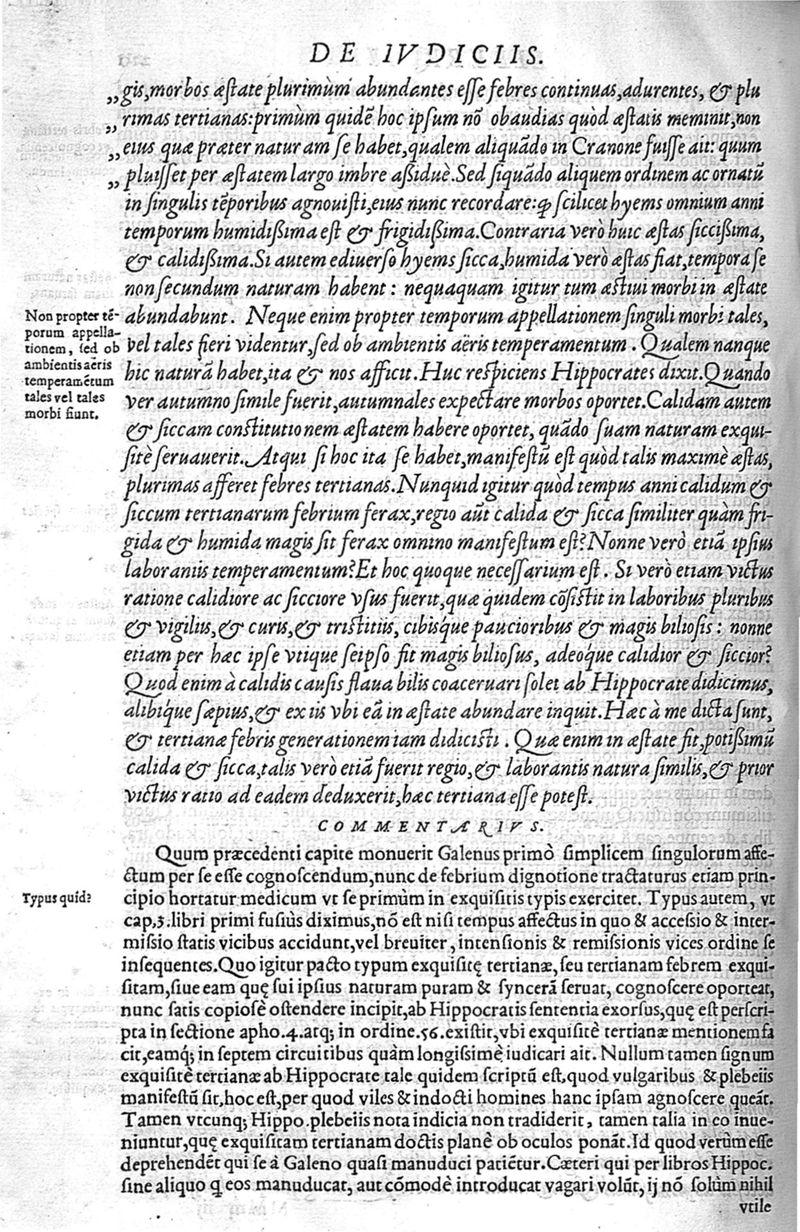 DE IVDICIIS.
„gis,morbos æstate plurimùm abundantes esse febres continuas,adurentes, & plu
„rimas tertianas:primùm quidẽ hoc ipsum nõ obaudias quòd æstatis meminit,non
„eius quæ præter naturam se habet,qualem aliquãdo in Cranone fuisse ait: quum
„pluisset per æstatem largo imbre aßiduè.Sed siquãdo aliquem ordinem ac ornatũ
in singulis tẽporibus agnouisti,eius nunc recordare:ꝙ scilicet hyems omnium anni
temporum humidißima est & frigidißima.Contraria verò huic æstas siccißima,
& calidißima.Si autem ediuerso hyems sicca,humida verò æstas fiat,tempora se
non secundum naturam habent : nequaquam igitur tum æstiui morbi in æstate
abundabunt. Neque enim propter temporum appellationem singuli morbi tales,
vel tales fieri videntur,sed ob ambientis aëris temperamentum . Qualem nanque
hic naturã habet,ita & nos afficit.Huc respiciens Hippocrates dixit.Quando
ver autumno simile fuerit,autumnales expectare morbos oportet.Calidam autem
& siccam constitutionem æstatem habere oportet, quãdo suam naturam exqui-
sitè seruauerit.Atqui si hoc ita se habet,manifestũ est quòd talis maximè æstas,
plurimas afferet febres tertianas.Nunquid igitur quòd tempus anni calidum &
siccum tertianarum febrium ferax,regio aũt calida & sicca similiter quàm fri-
gida & humida magis sit ferax omnino manifestum est?Nonne verò etiã ipsius
laborantis temperamentum?Et hoc quoque necessarium est . Si verò etiam victus
ratione calidiore ac sicciore vsus fuerit,quæ quidem cõsistit in laboribus pluribus
& vigiliis,& curis,& tristitiis, cibisque paucioribus & magis biliosis : nonne
etiam per hæc ipse vtique seipso fit magis biliosus, adeoque calidior & siccior?
Quod enim à calidis causis flaua bilis coaceruari solet ab Hippocrate didicimus,
alibique sæpius,& ex iis vbi eã in æstate abundare inquit.Hæc à me dicta sunt,
& tertianæ febris generationem iam didicisti . Quæ enim in æstate fit,potißimũ
calida & sicca,talis verò etiã fuerit regio,& laborantis natura similis,& prior
victus ratio ad eadem deduxerit,hæc tertiana esse potest.
Non propter tẽ-
porum appella-
tionem, sed ob
ambientis aëris
temperamẽtum
tales vel tales
morbi fiunt.
COMMENTARIVS.
Quum præcedenti capite monuerit Galenus primò simplicem singulorum affe-
ctum per se esse cognoscendum,nunc de febrium dignotione tractaturus etiam prin-
cipio hortatur medicum vt se primùm in exquisitis typis exercitet. Typus autem, vt
cap,3.libri primi fusiùs diximus,nõ est nisi tempus affectus in quo & accessio & inter-
missio statis vicibus accidunt,vel breuiter, intensionis & remissionis vices ordine se
insequentes.Quo igitur pacto typum exquisitę tertianæ,seu tertianam febrem exqui-
sitam,siue eam quę sui ipsius naturam puram & syncerã seruat, cognoscere oporteat,
nunc satis copiosè ostendere incipit,ab Hippocratis sententia exorsus,quę est perscri-
pta in sectione apho.4.atq; in ordine.56.existit,vbi exquisitè tertianæ mentionem fa
cit,eamq; in septem circuitibus quàm longissimè iudicari ait. Nullum tamen signum
exquisitè tertianæ ab Hippocrate tale quidem scriptũ est,quod vulgaribus & plebeiis
manifestũ sit,hoc est,per quod viles & indocti homines hanc ipsam agnoscere queãt.
Tamen vtcunq; Hippo.plebeiis nota indicia non tradiderit, tamen talia in eo inue-
niuntur,quę exquisitam tertianam doctis planè ob oculos ponãt.Id quod verùm esse
deprehendẽt qui se à Galeno quasi manuduci patiẽtur.Cæteri qui per libros Hippoc.
sine aliquo q̃ eos manuducat, aut cõmodè introducat vagari volũt, ij nõ solùm nihil
vtile
Typus quid?